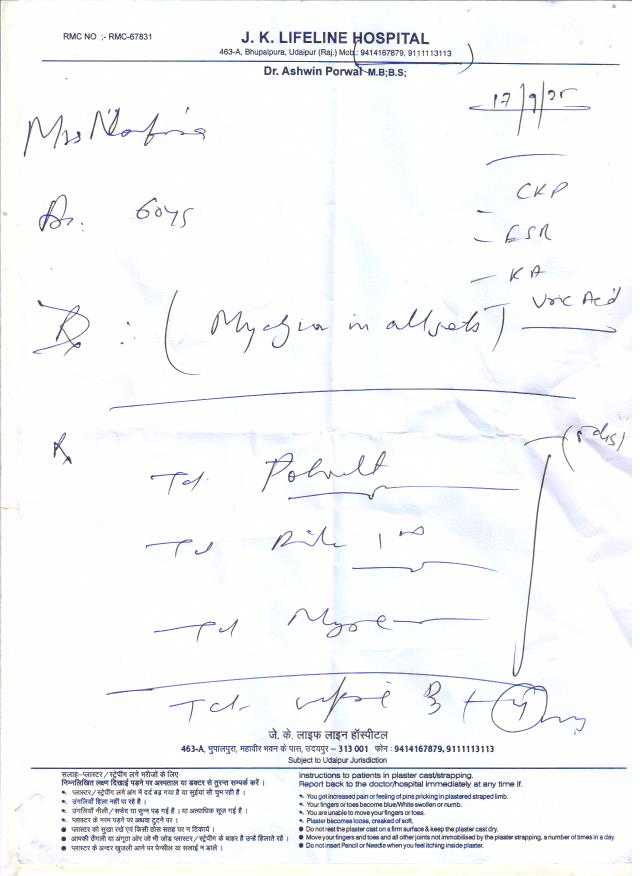 RMC NO ;- RMC-67831
J. K. LIFELINE HOSPITAL
463-A, Bhupalpura, Udaipur (Raj.) Mob.: 9414167879, 9111113113
Dr. Ashwin Porwal M.B;B.S;
17/9/25
Mrs
60 ys
CKP
- ESR
- RA
Uric Acid
: ( Myalgia in all )
Rx
Td.
Td
Td
जे. के. लाइफ लाइन हॉस्पीटल
463-A, भुपालपुरा, महावीर भवन के पास, उदयपुर – 313 001 फोन : 9414167879, 9111113113
Subject to Udaipur Jurisdiction
सलाह-प्लास्टर / स्ट्रेपींग लगे मरीजों के लिए
निम्नलिखित लक्षण दिखाई पड़ने पर अस्पताल या डाक्टर से तुरन्त सम्पर्क करें ।
प्लास्टर / स्ट्रेपींग लगे अंग में दर्द बढ़ गया है या सुईयां सी चुभ रही है ।
उंगलियाँ हिला नहीं पा रहे है ।
उंगलियाँ नीली / सफेद या सुन्न पड़ गई है । या अत्याधिक सूज गई है ।
प्लास्टर के नरम पड़ने पर अथवा टुटने पर ।
प्लास्टर को सुखा रखें एवं किसी ठोस सतह पर न टिकाये ।
आपकी उँगली या अंगूठा और जो भी जोड़ प्लास्टर / स्ट्रेपींग के बाहर है उन्हें हिलाते रहे ।
प्लास्टर के अन्दर खुजली आने पर पेन्सील या सलाई न डाले ।
Instructions to patients in plaster cast/strapping.
Report back to the doctor/hospital immediately at any time if.
You got increased pain or feeling of pins pricking in plastered straped limb.
Your fingers or toes become blue/White swollen or numb.
You are unable to move your fingers or toes.
Plaster becomes loose, creaked of soft.
Do not rest the plaster cast on a firm surface & keep the plaster cast dry.
Move your fingers and toes and all other joints not immobilised by the plaster strapping, a number of times in a day.
Do not insert Pencil or Needle when you feel itching inside plaster.